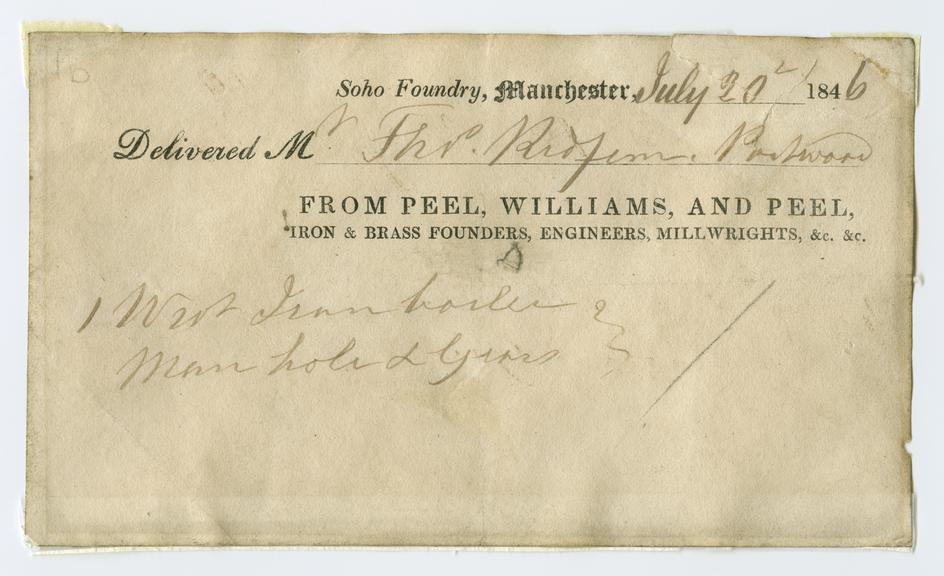 Soho Foundry, Manchester, July 20 1846
Delivered Mr Thos. Ridgway. Portwood
FROM PEEL, WILLIAMS, AND PEEL,
IRON & BRASS FOUNDERS, ENGINEERS, MILLWRIGHTS, &c. &c.
1 Wrot Iron boiler
Man hole & Gears